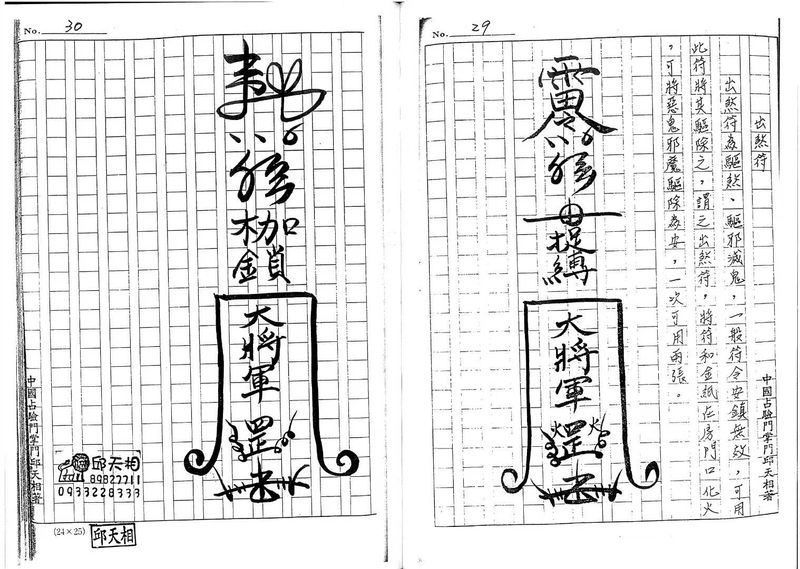 No. 29
出煞符
出煞符為驅煞、驅邪滅鬼,一般符令安鎮無效,可用
此符將其驅除之,謂之出煞符,將符和金紙在房門口化火
,可將惡鬼邪魔驅除為安,一次可用兩張。
捉縛
大將軍
罡
火 火
中國占驗門掌門邱天相著
No. 30
枷鎖
大將軍
罡
中國占驗門掌門邱天相著
邱天相
89827711
0933228333
(24×25)
邱天相